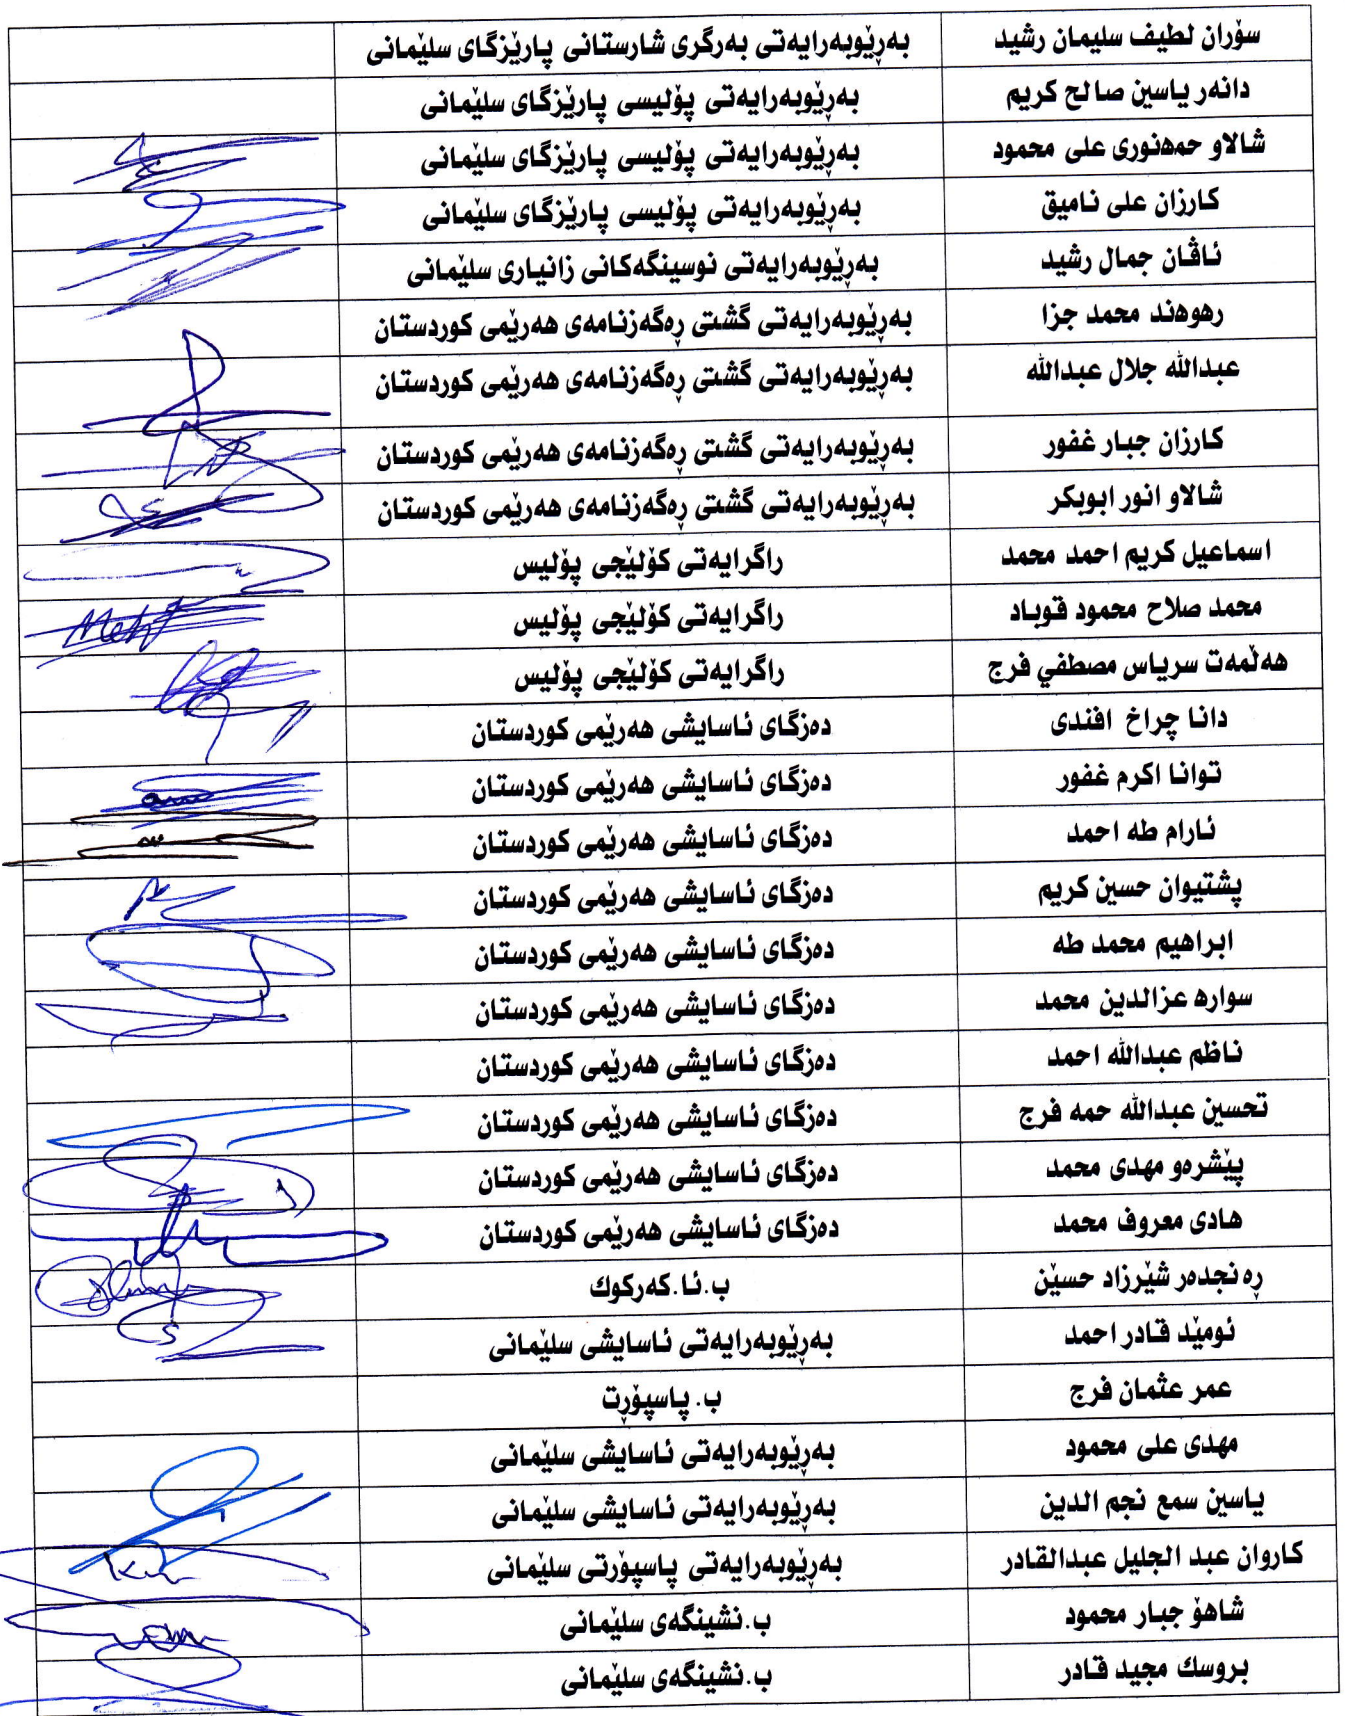 سۆران لطيف سليمان رشيد بەڕێوبەرایەتی بەرگری شارستانی پارێزگای سلێمانی
دانەر ياسين صالح كريم بەڕێوبەرایەتی پۆلیسی پارێزگای سلێمانی
شالاو حمەنوری علی محمود بەڕێوبەرایەتی پۆلیسی پارێزگای سلێمانی
كارزان علی نامیق بەڕێوبەرایەتی پۆلیسی پارێزگای سلێمانی
ئاڤان جمال رشید بەڕێوبەرایەتی نوسینگەکانی زانیاری سلێمانی
رهوهند محمد جزا بەڕێوبەرایەتی گشتی ڕەگەزنامەی هەرێمی کوردستان
عبدالله جلال عبدالله بەڕێوبەرایەتی گشتی ڕەگەزنامەی هەرێمی کوردستان
كارزان جبار غفور بەڕێوبەرایەتی گشتی ڕەگەزنامەی هەرێمی کوردستان
شالاو انور ابوبكر بەڕێوبەرایەتی گشتی ڕەگەزنامەی هەرێمی کوردستان
اسماعيل كريم احمد محمد راگرایەتی کۆلێجی پۆلیس
محمد صلاح محمود قوباد راگرایەتی کۆلێجی پۆلیس
هەڵمەت سرياس مصطفي فرج راگرایەتی کۆلێجی پۆلیس
دانا چراخ افندی دەزگای ئاسایشی هەرێمی کوردستان
توانا اكرم غفور دەزگای ئاسایشی هەرێمی کوردستان
ئارام طه احمد دەزگای ئاسایشی هەرێمی کوردستان
پشتیوان حسين كريم دەزگای ئاسایشی هەرێمی کوردستان
ابراهيم محمد طه دەزگای ئاسایشی هەرێمی کوردستان
سواره عزالدين محمد دەزگای ئاسایشی هەرێمی کوردستان
ناظم عبدالله احمد دەزگای ئاسایشی هەرێمی کوردستان
تحسين عبدالله حمه فرج دەزگای ئاسایشی هەرێمی کوردستان
پێشرەو مهدی محمد دەزگای ئاسایشی هەرێمی کوردستان
هادی معروف محمد دەزگای ئاسایشی هەرێمی کوردستان
ڕە نجدەر شێرزاد حسێن ب.ئا.كەركوك
ئومێد قادر احمد بەڕێوبەرایەتی ئاسایشی سلێمانی
عمر عثمان فرج ب. پاسپۆرت
مهدی علی محمود بەڕێوبەرایەتی ئاسایشی سلێمانی
ياسين سمع نجم الدين بەڕێوبەرایەتی ئاسایشی سلێمانی
كاروان عبد الجليل عبدالقادر بەڕێوبەرایەتی پاسپۆرتی سلێمانی
شاهۆ جبار محمود ب.نشینگەی سلێمانی
بروسك مجيد قادر ب.نشینگەی سلێمانی